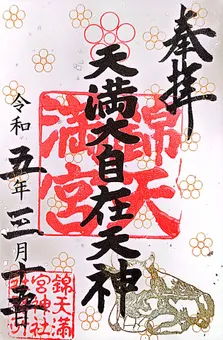 奉拝
天満大自在天神
錦天
満宮
令和五年三月十五日
錦天満
宮神社